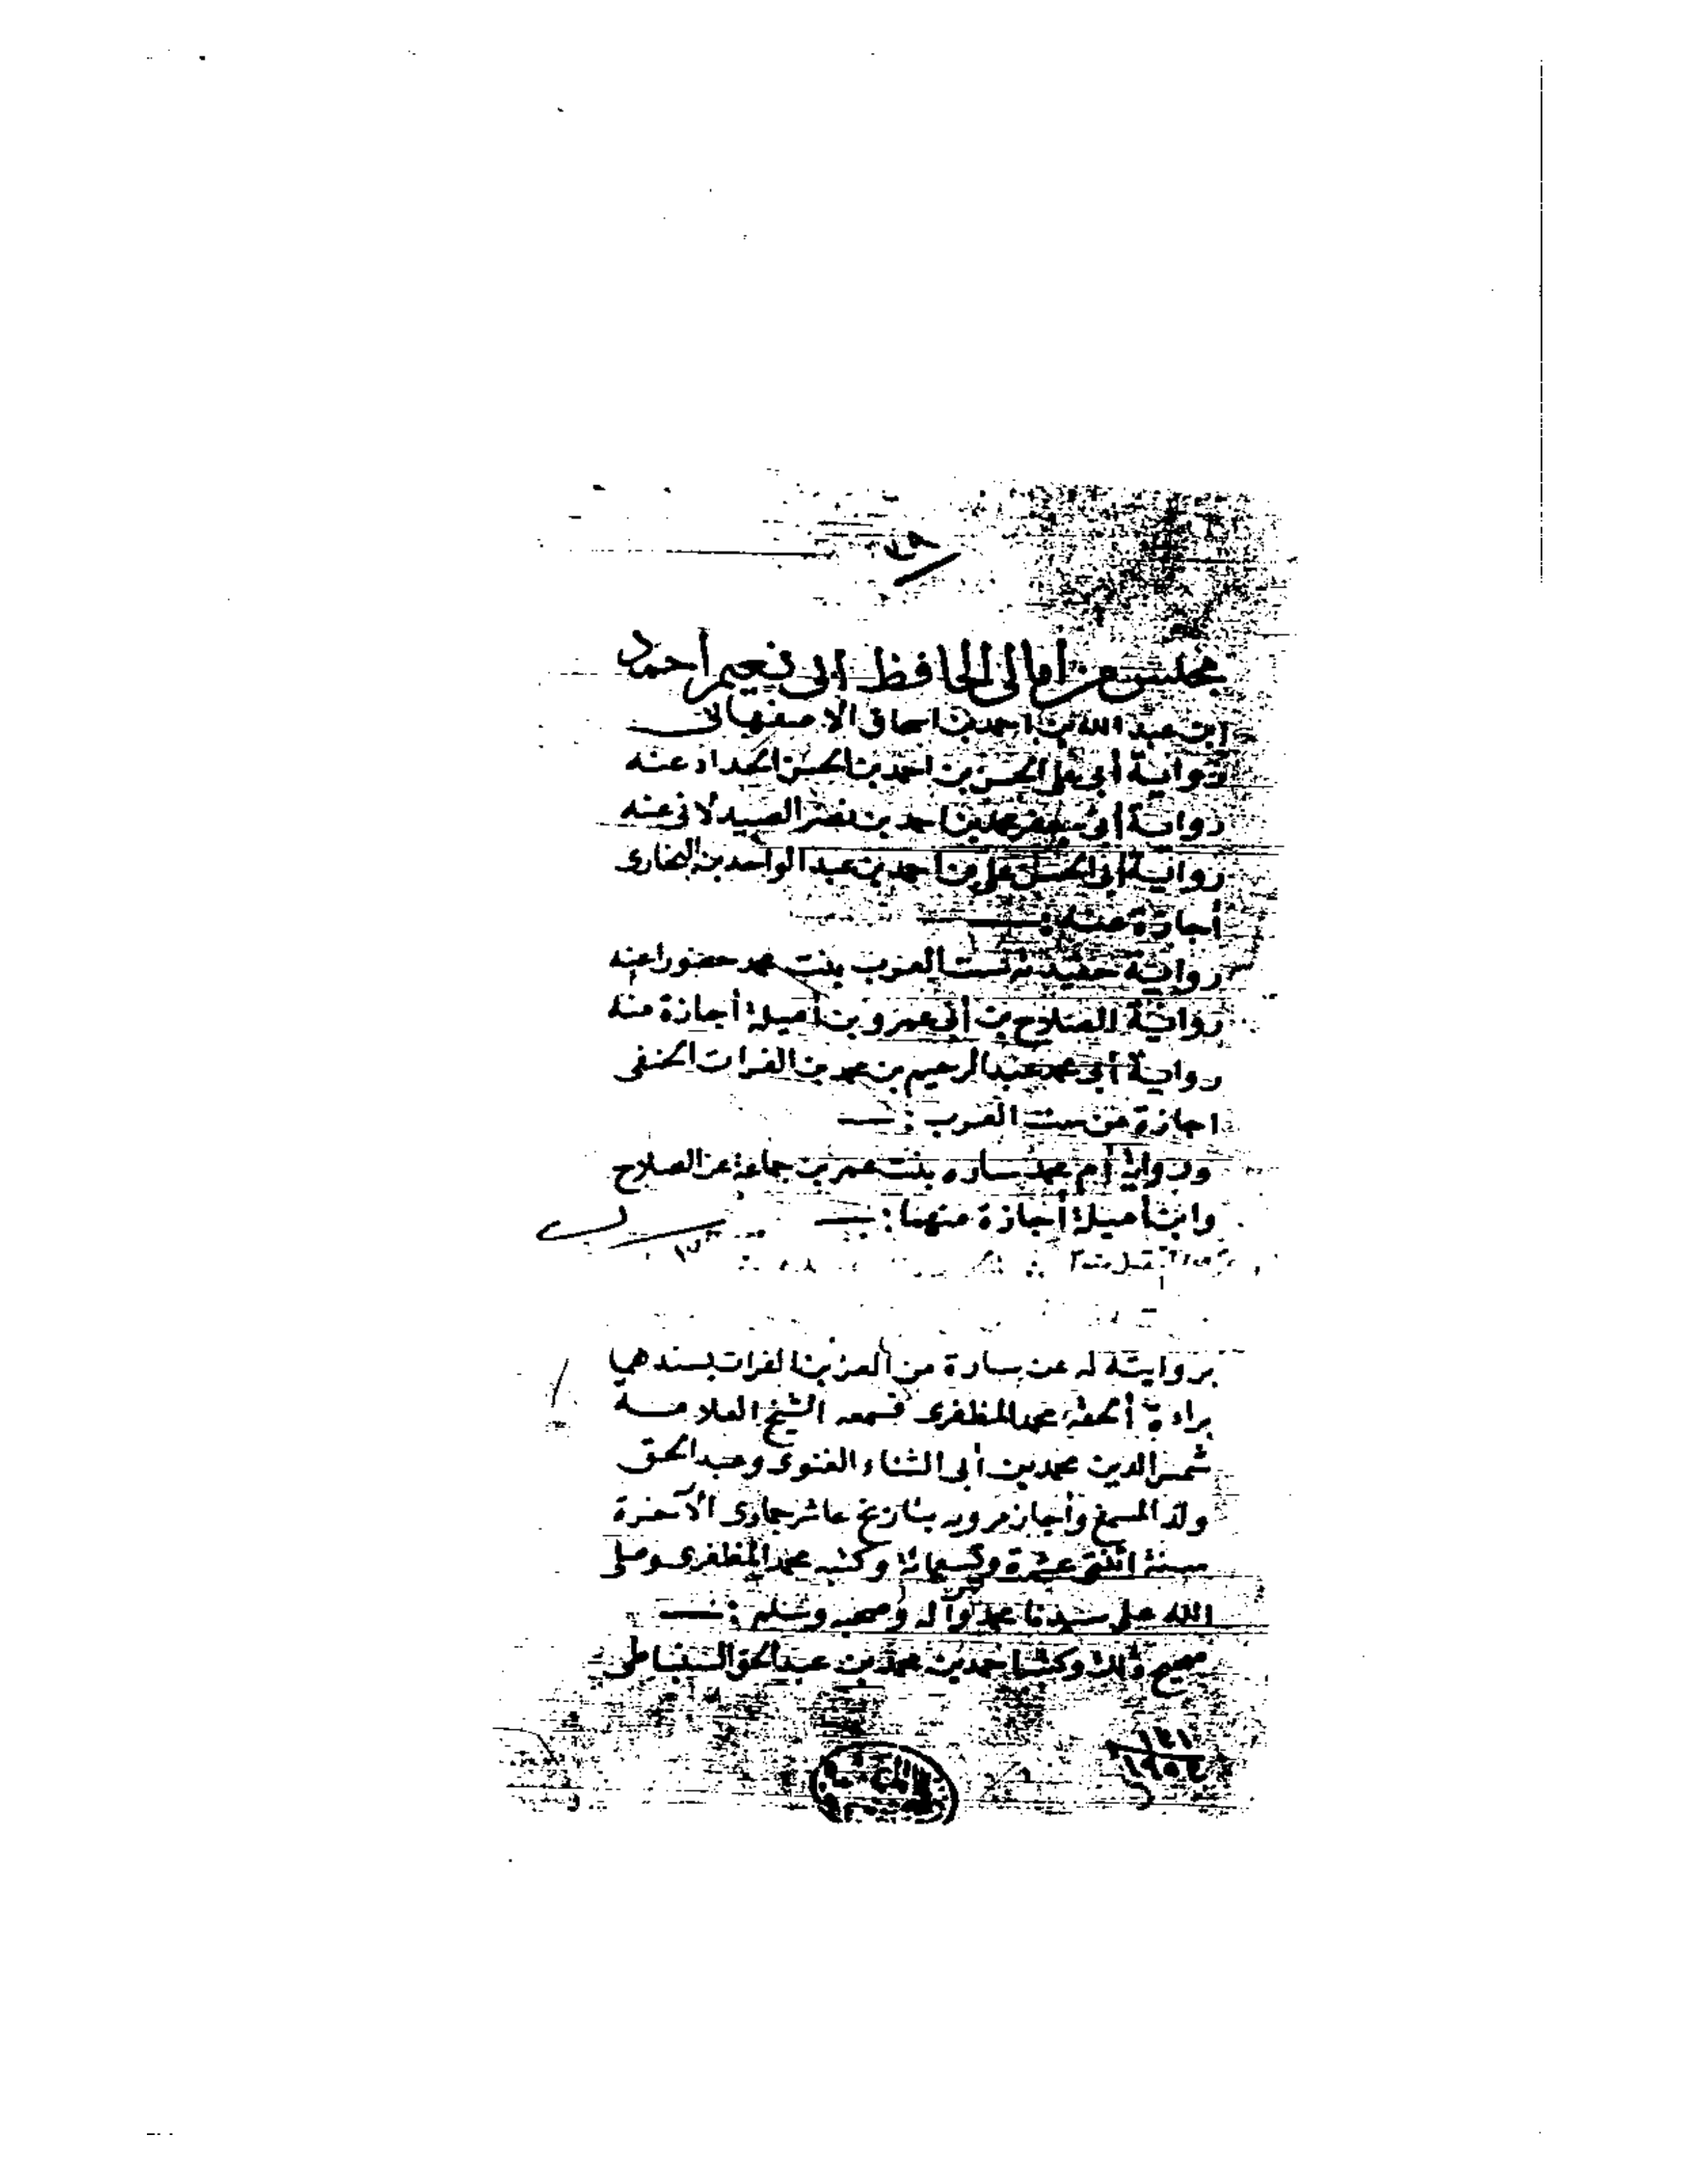 مجلس من امالى الحافظ ابى نعيم أحمد
ابن عبد الله بن احمد بن اسحاق الاصفهانى
رواية أبى على الحسن بن احمد بن الحسن الحداد عنه
رواية أبى جعفر محمد بن احمد بن نصر الصيدلانى عنه
رواية أبى الحسن على بن احمد بن عبد الواحد بن البخارى
أجازة عنه :
رواية حفيدته ست العرب بنت محمد حضورا عنه
رواية الصلاح بن أبى عمر و بن أميلة أجازة منه
رواية أبى محمد عبد الرحيم بن محمد بن الفرات الحنفى
اجازة من ست العرب :
ورواية أم محمد ساره بنت عمر بن جماعة عن الصلاح
وابن أميلة أجازة منهما :
بروايته له عن سارة من العز بن الفرات بسندهما
براءة ألحقه محمد المظفرى فسمعه الشيخ العلامة
شمس الدين محمد بن أبى الثناء الغنوى وعبد الحق
ولد المسمع وأجاز مرويه بتاريخ عاشر جمادى الآخرة
سنة اثنتى عشرة وتسعمائة وكتبه محمد المظفرى وصلى
الله على سيدنا محمد وآله وصحبه وسلم :
صحيح ذلك وكتب احمد بن محمد بن عبد الحق السنباطى